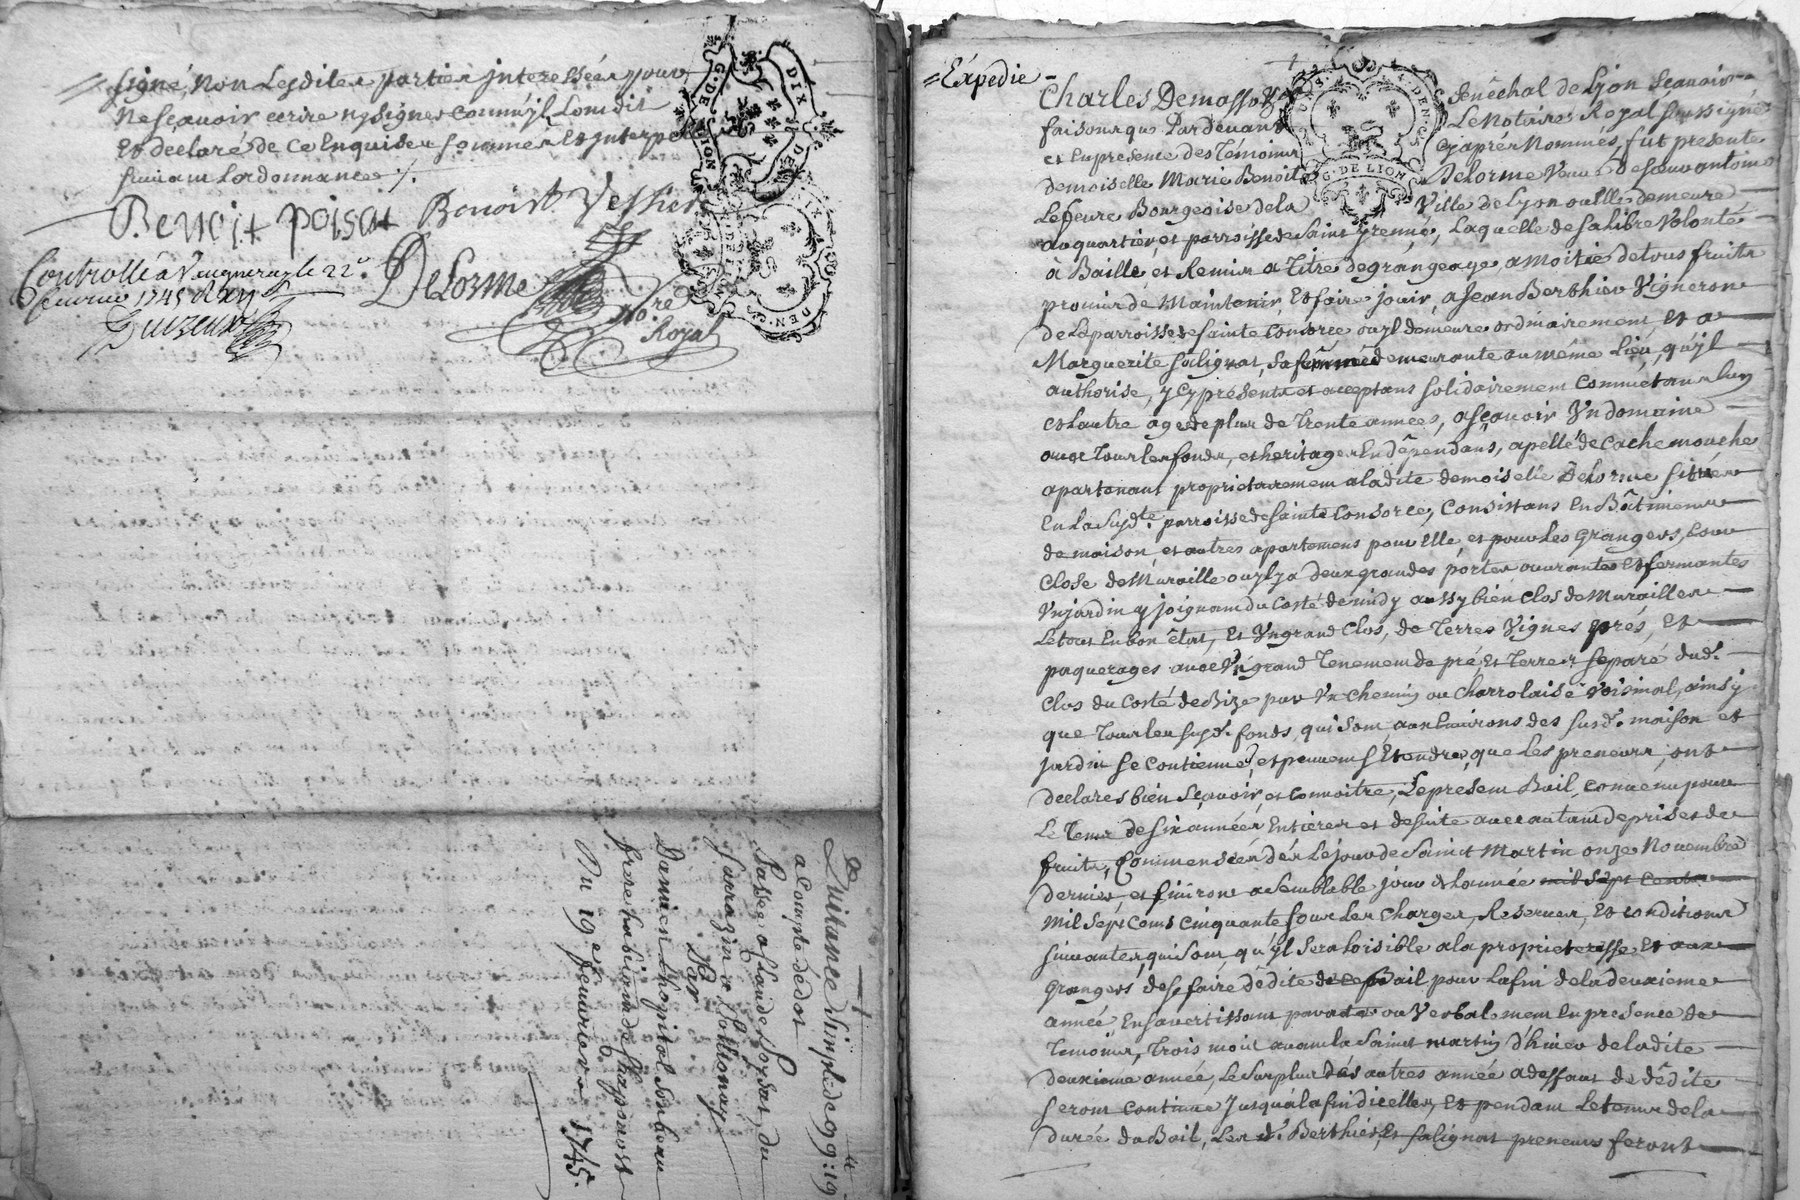 signé, Non Lesdites parties interessées pour
Ne sçauoir ecrire ny signer comme yl L'ont dit
Et declaré de ce Enquises sommés et interpellé
suiuant L'ordonnance /.
Benoit poisat Benoist Vessier
Controllé a Vaugneray le 22e.
feurier 1745 Reçu
DeLorme No.re
Royal
G. DE LION DIX DEN.
4
Quittance Simple de 99: 19
a Compte de dot
Passée a Claude Loysat, du
Sarrazin a Pollionay
Par
Damien Lhopital Son beau
frere habitant de Chapponost
Du 19.e feurier 1745.
=Expedie=
Charles Demasso Senêchal de Lyon Scauoir
faisons que Pardeuant Le Notaire Royal soussigné
et En presence des Témoins Cy aprés Nommés, fut presente
demoiselle Marie Benoite DeLorme Veuue De Sr. antoine
Lefeure Bourgeoise de la Ville de Lyon ou Elle demeure
G. DE LION DEN.
au quartier, et parroisse de Saint yrenné, Laquelle de Sa libre Volonté
à Baillé, et Remis a Titre de grangeage, a moitié de tous fruits
promis de Maintenir, Et faire jouir, a Jean Berthier Vigneron
de La parroisse de Sainte Consorce ou yl demeure ordinairement, Et a
Marguerite Salignat, Sa femme demeurante au même Lieu, qu'jl
authorise, y Cy présents et acceptans solidairement comme tant Luy
Et L'autre agés de plus de Trente années, asçauoir Vn domaine
auec Tous les fonds, et heritages En dépendans, apellé de Cache mouche
apartenant proprietairement a la dite demoiselle DeLorme Situés
En La Susd.te parroisse de Sainte Consorce, Consistans En Bâtiments
de maison, et autres apartemens pour Elle, et pour Les Grangers, Cour
Close de Muraille ou yl y a deux grandes portes ouurantes et fermantes
Vn jardin y joignant du Costé de midy aussy bien clos de Murailles
Le tout En bon état, Et Vn grand Clos, de Terres Vignes prés, Et
paquerages auec Vn grand Tenement de pré Et Terres Separé dud.t
Clos du Costé de Bize par Vn Chemin ou Charrolaise Voisinal, ainsy
que Tous les susd.t fonds, qui sont aux Enuirons des susd.t maison et
jardin se contienne, et peuuent S'Etendre, que Les preneurs, ont
declares bien Sçauoir, et connoitre, Le present Bail, conuenu pour
Le Tems de six années Entieres et de suite auec autant de prises de
fruits, Commencées dés Le jour de Saint Martin onze Nouembre
dernier, et finiront a Semblable jour de Lannée mil Sept Cents
Mil Sept Cents Cinquante sous Les Charges, Reserues, Et conditions
Suiuantes, qui sont, qu'yl Sera Loisible a la proprieteresse Et aux
Grangers, de se faire dédite de ce Bail pour La fin de la deuxieme
année En s'avertissant par acte ou Verbalement En presence de
Temoins, Trois mois auant la Saint martin d'hiuer de ladite
deuxieme année, Le Surplus des autres année a deffaut de dédite
seront continué Jusqu'a la fin d'icelles, Et pendant Le tems de la
durée du Bail, Les d.t Berthier, Et Salignat preneurs feront